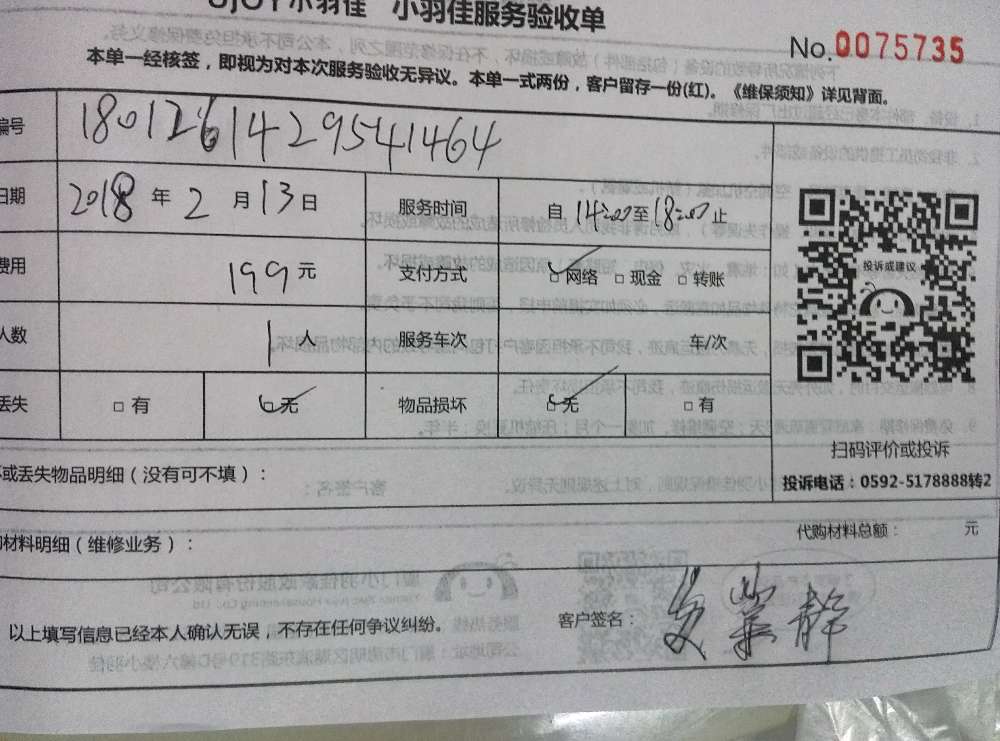 小羽佳 小羽佳服务验收单
No.0075735
本单一经核签，即视为对本次服务验收无异议。本单一式两份，客户留存一份(红)。《维保须知》详见背面。
编号 180126142954 1464
日期 2018 年 2 月 13 日 服务时间 自 14:00 至 18:00 止
费用 199 元 支付方式 ☑网络 □现金 □转账
人数 1 人 服务车次 车/次
丢失 □有 ☑无 物品损坏 ☑无 □有
投诉或建议
扫码评价或投诉
投诉电话：0592-5178888转2
或丢失物品明细（没有可不填）：
材料明细（维修业务）： 代购材料总额： 元
以上填写信息已经本人确认无误，不存在任何争议纠纷。 客户签名： 静